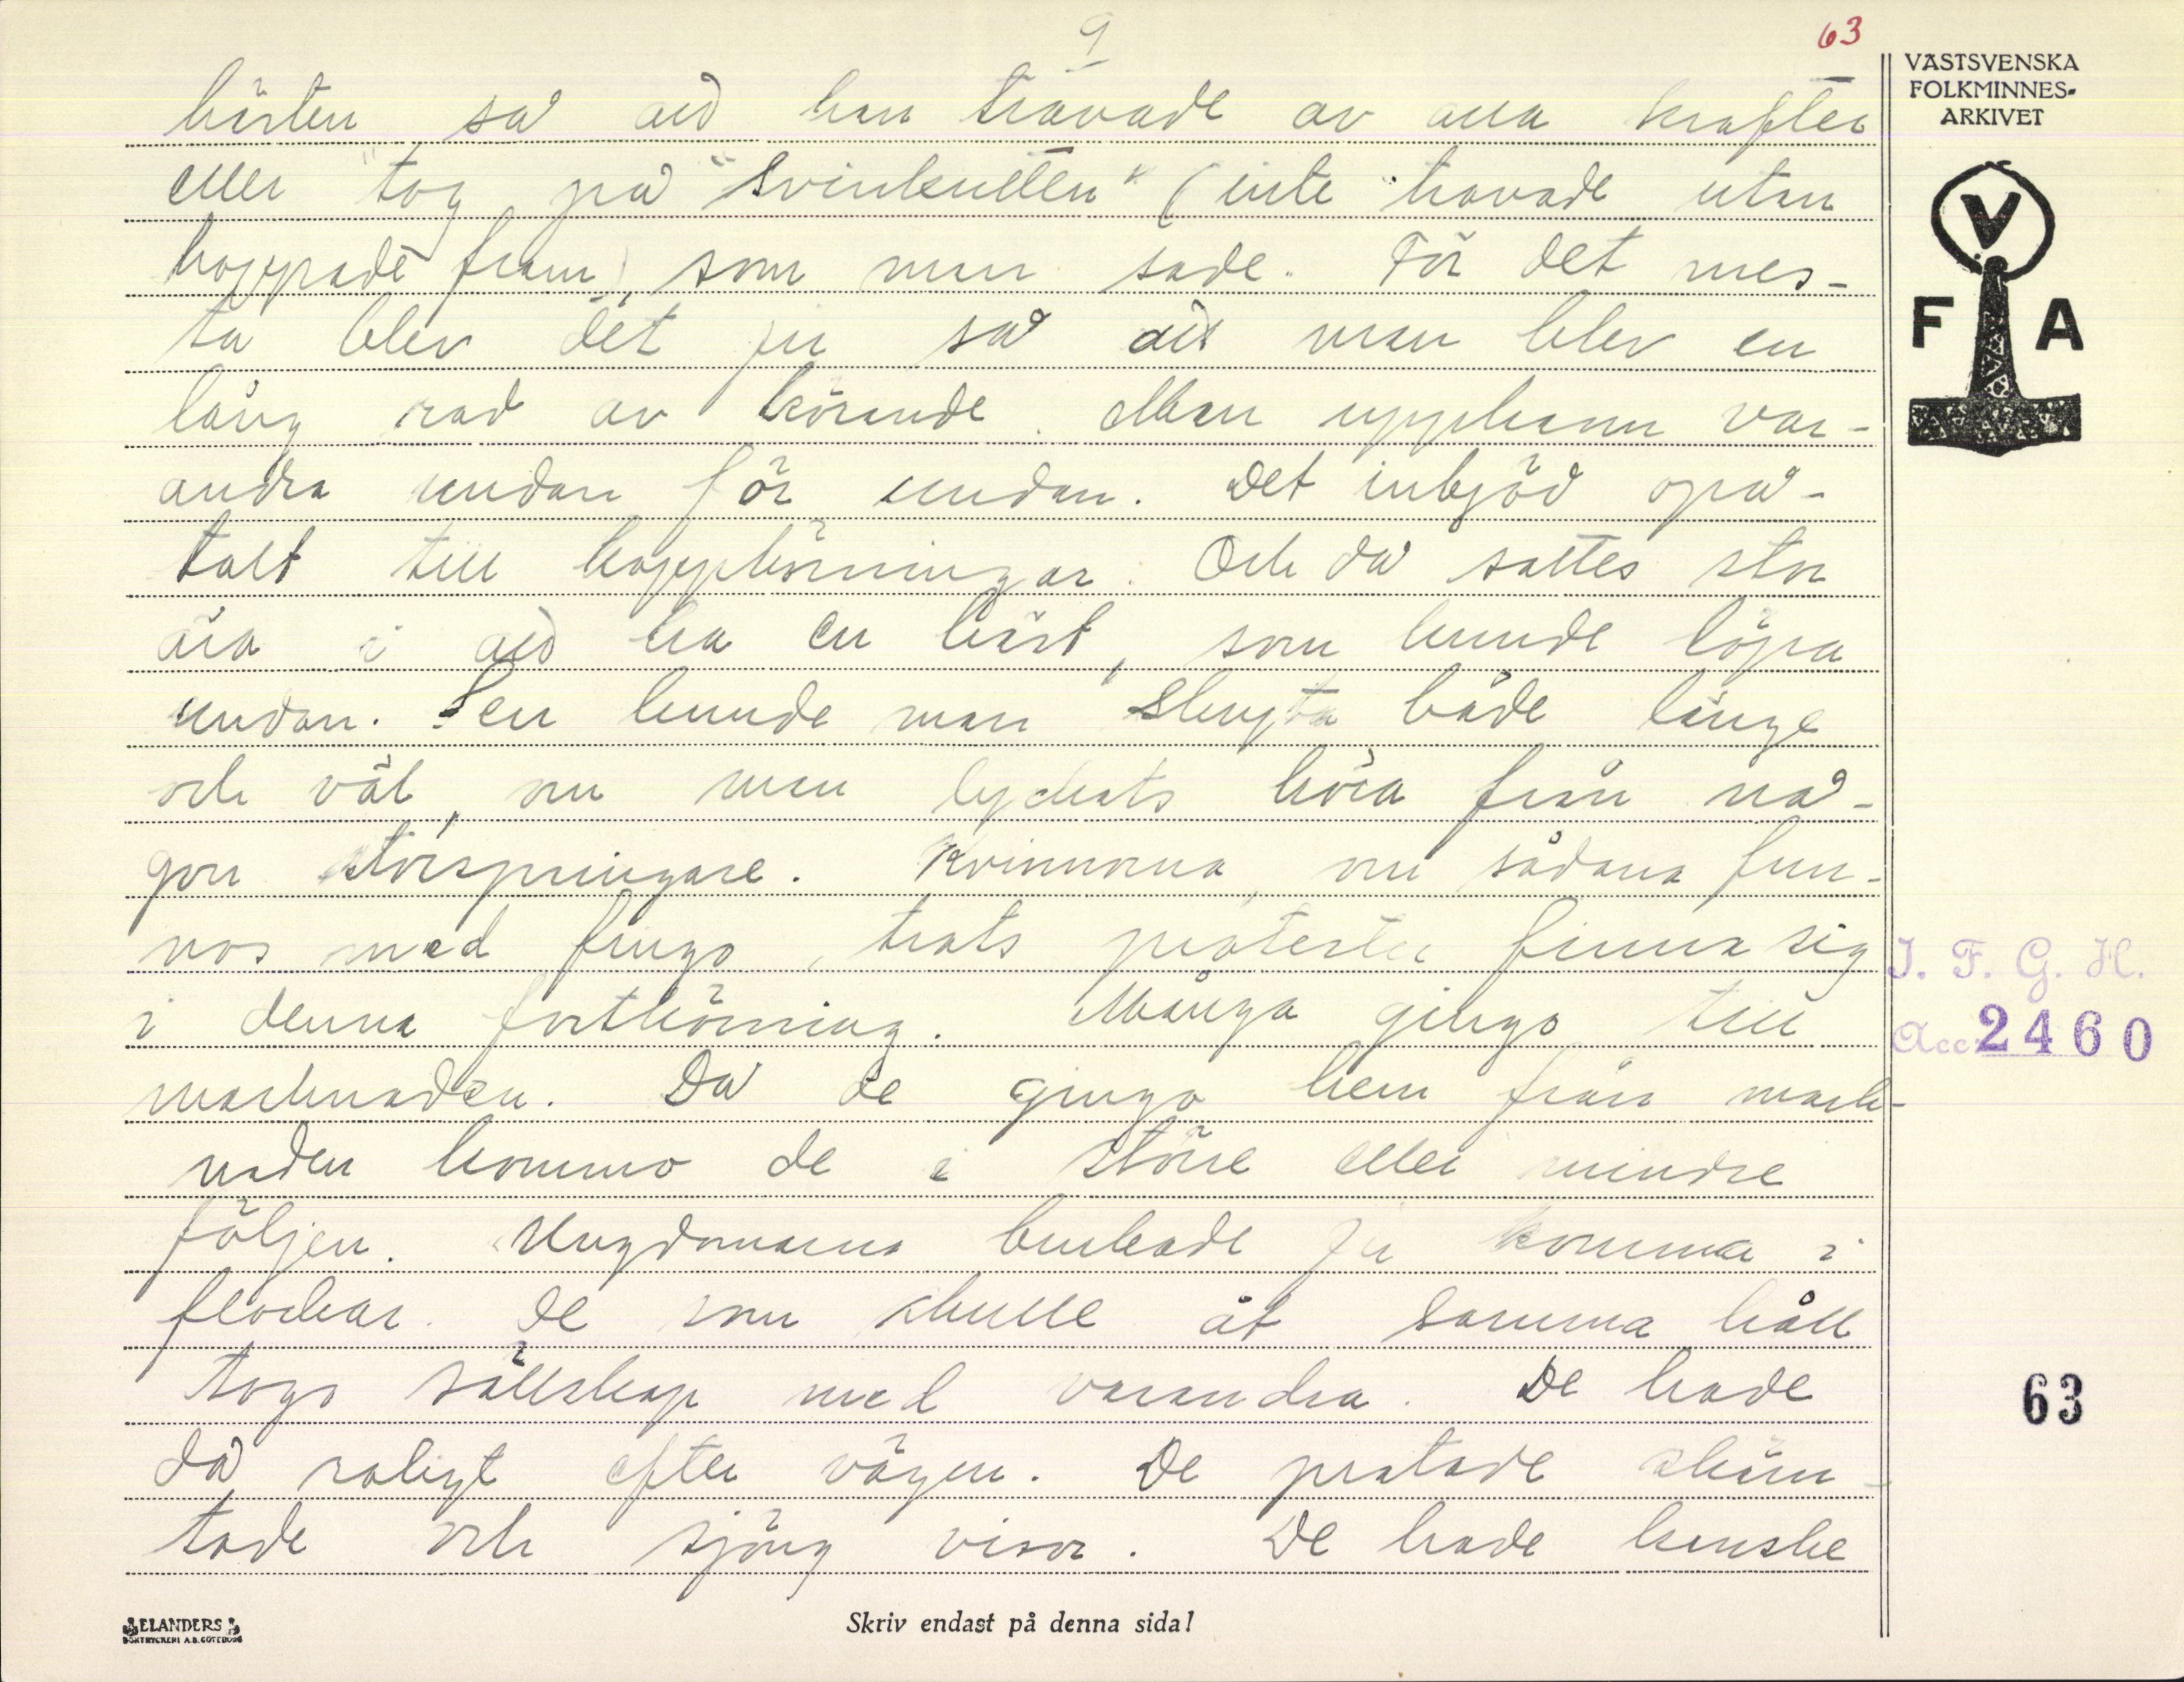 9
63
VÄSTSVENSKA
FOLKMINNES-
ARKIVET
V
F A
hästen så att han travade av alla krafter
eller "tog på "svinkulten" (inte travade utan
hoppade fram), som man sade. För det mes-
ta blev det ju så att man blev en
lång rad av körande. Man upphann var-
andra undan för undan. Det inbjöd opå-
talt till kappkörningar. Och då sattes stor
ära i att ha en häst, som kunde löpa
undan. Sen kunde man skryta både länge
och väl, om man lyckats köra från nå-
gon storspringare. Kvinnorna, om sådana fun-
nos med fingo, trots protester finna sig
i denna fortkörning. Många gingo till
marknaden. Då de gingo hem från mark-
naden kommo de i större eller mindre
följen. Ungdomarna brukade ju komma i
flockar. De som skulle åt samma håll
togo sällskap med varandra. De hade
då roligt efter vägen. De pratade skäm-
tade och sjöng visor. De hade kanske
I. F. G. H.
Acc. 2460
63
ELANDERS
BOKTRYCKERI A.B. GÖTEBORG
Skriv endast på denna sida!